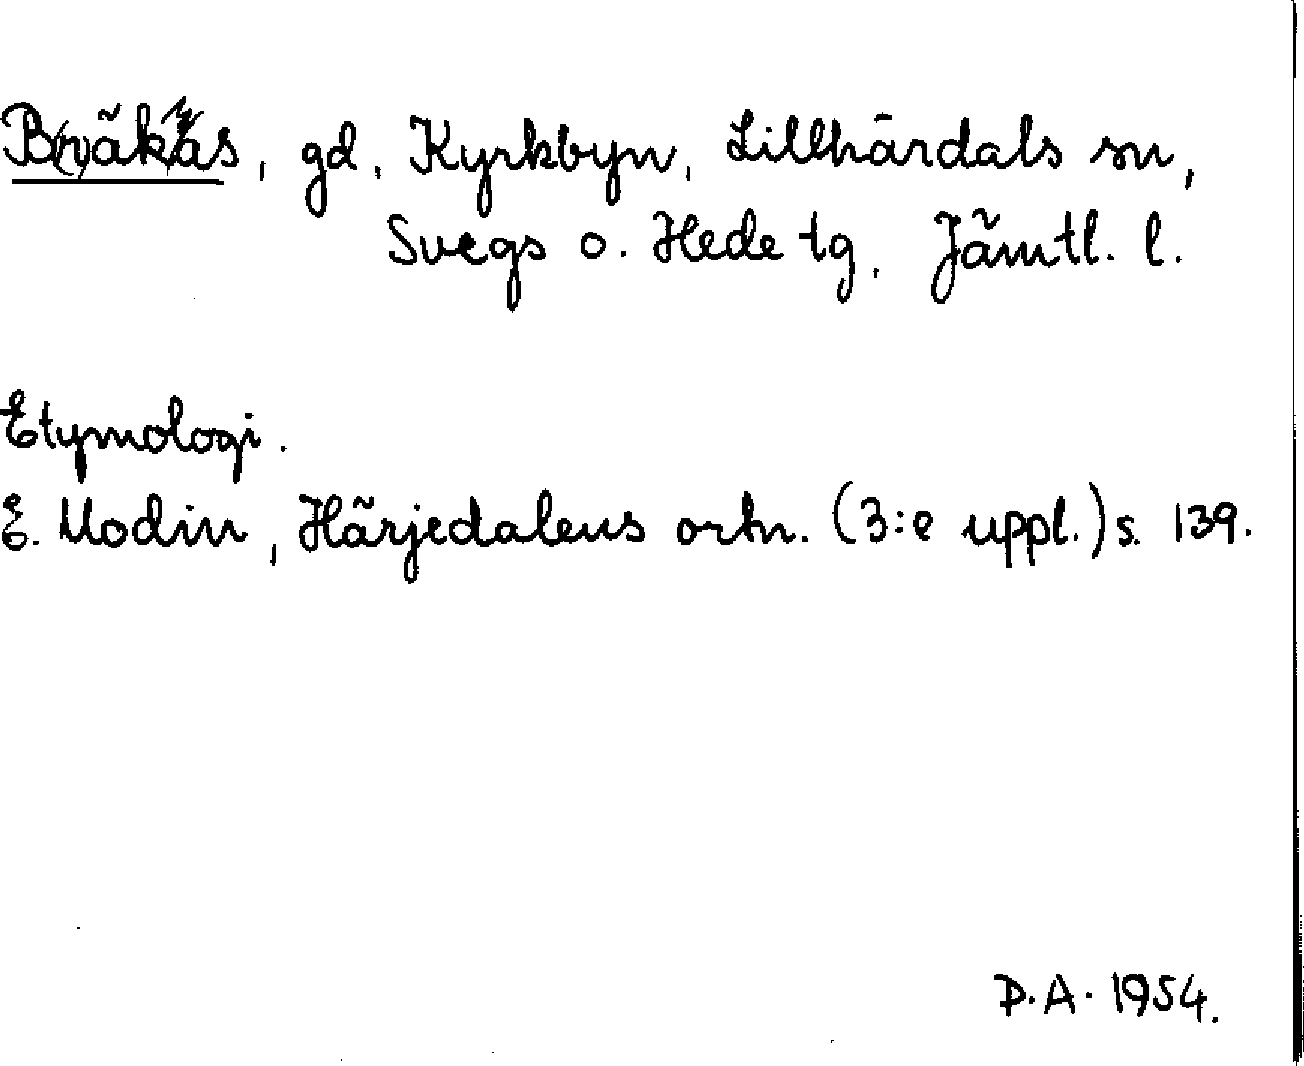 B(r)äkås, gd, Kyrkbyn, Lillhärdals sn,
Svegs o. Hede tg, Jämtl. l.
Etymologi.
E. Modin, Härjedalens ortn. (3:e uppl.) s. 139.
D.A. 1954.